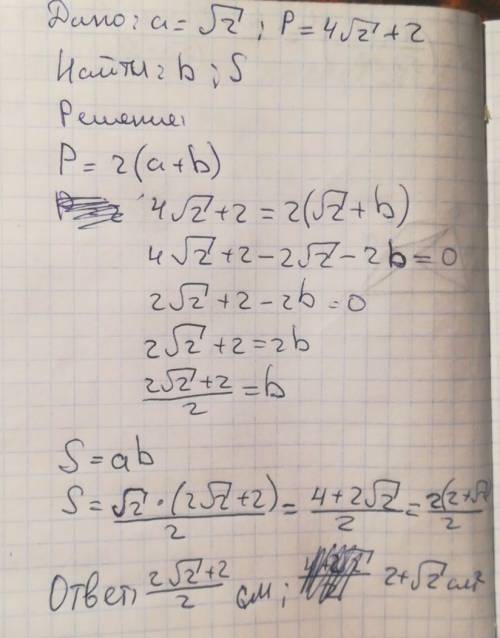 Дано: a = √2 ; P = 4√2 + 2
Найти: b ; S
Решение:
P = 2(a+b)
4√2 + 2 = 2(√2 + b)
4√2 + 2 − 2√2 − 2b = 0
2√2 + 2 − 2b = 0
2√2 + 2 = 2b
(2√2 + 2)/2 = b
S = ab
S = (√2 · (2√2 + 2))/2 = (4 + 2√2)/2 = (2(2 + √2))/2
Ответ: (2√2 + 2)/2 см ; 2 + √2 см²